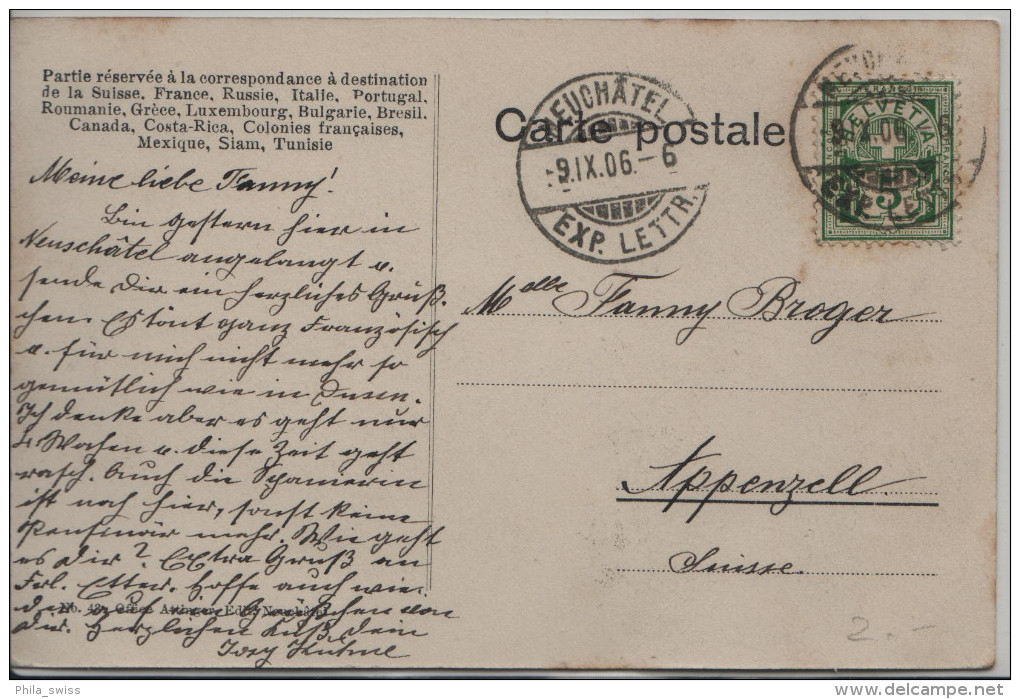 Partie réservée à la correspondance à destination
de la Suisse, France, Russie, Italie, Portugal,
Roumanie, Grèce, Luxembourg, Bulgarie, Bresil,
Canada, Costa-Rica, Colonies françaises,
Mexique, Siam, Tunisie
Carte postale
NEUCHÂTEL
9.IX.06.-6
EXP. LETTR.
HELVETIA
5
IX.06
Meine liebe Fanny!
Bin gestern hier in
Neuschâtel angelangt u.
sende Dir ein herzliches Grüß-
chen. Es tönt ganz Französisch
u. für mich nicht mehr so
gemütlich wie in
Ich denke aber es geht nur
Wochen u. diese Zeit geht
rasch. Auch die Spanierin
ist noch hier, sonst keine
Pensionär mehr. Wie geht
es dir? Extra Gruß an
Frl. Etter. Hoffe auch wie-
der Grüßchen von
dir. Herzlichen Kuß, Dein
Melle Fanny Broger
Appenzell
Suisse.
Edit. Neuchâtel
2.-
Phila_swiss
delcampe.net